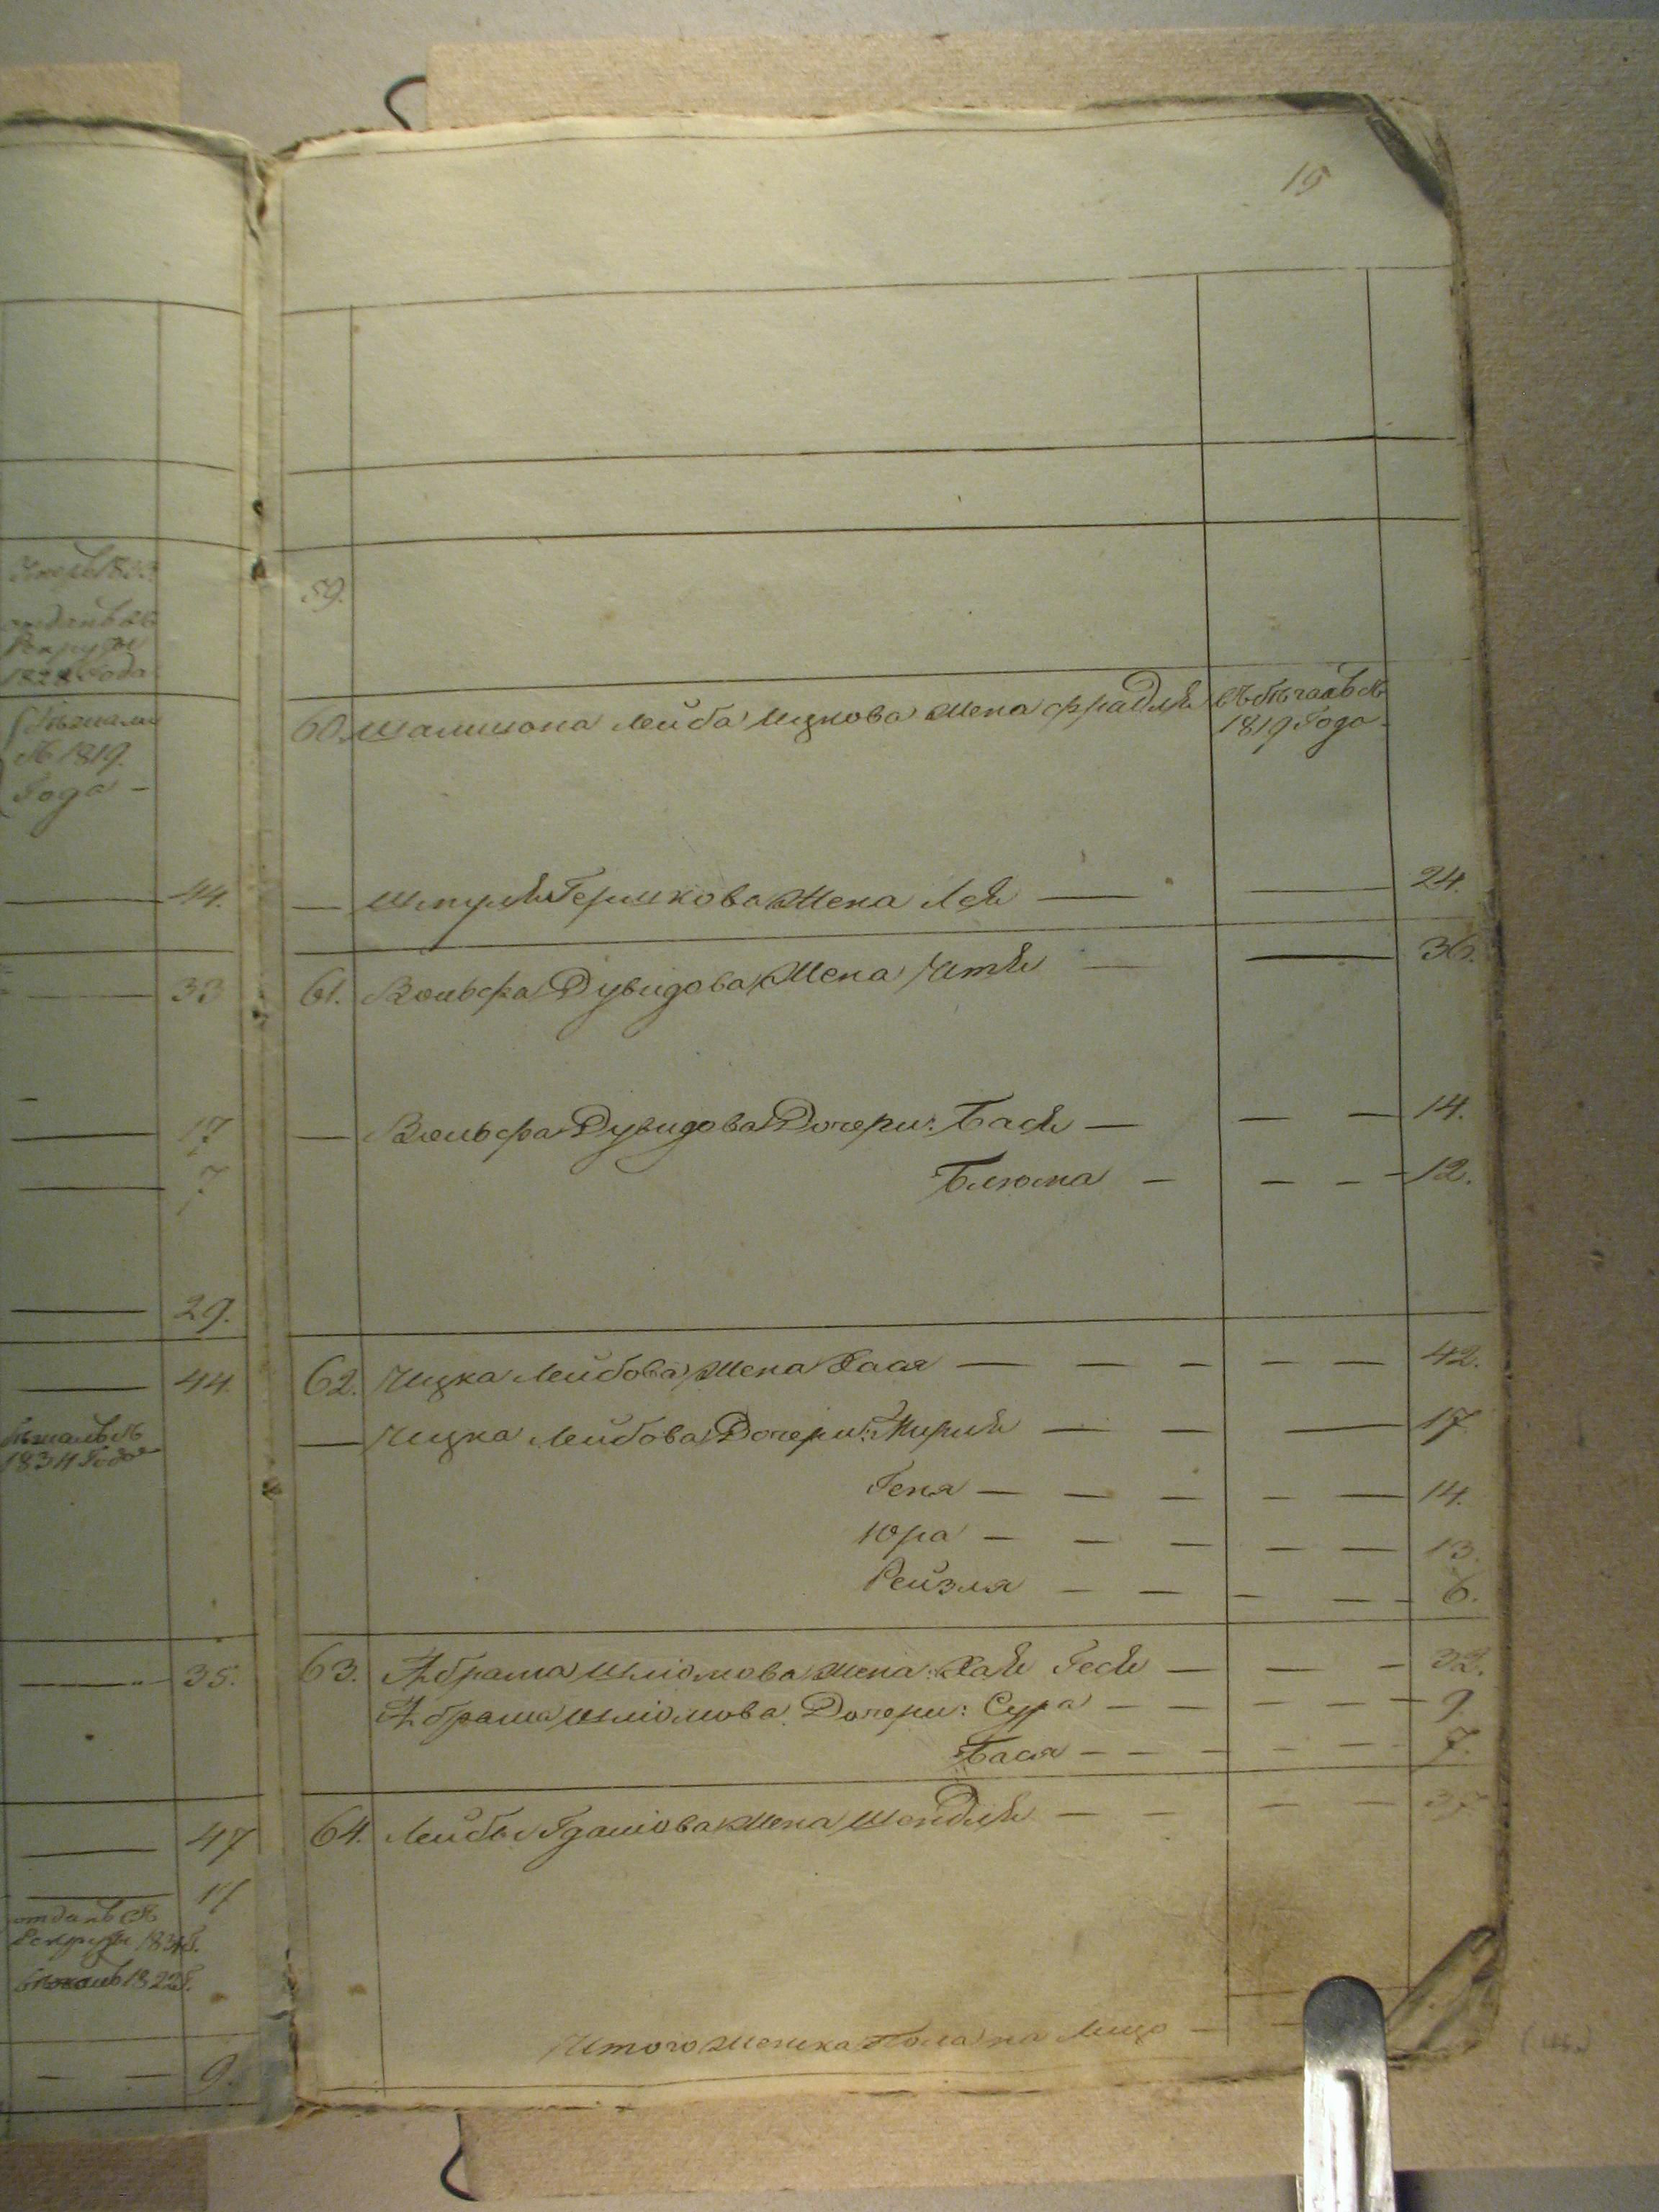 19
Умеръ 183
отданъ въ
Рекруты
1828 Года
бежали
въ 1819.
Года -
44.
33
17
7
29.
44
бежалъ въ
1834 Года
35.
47
17
отданъ въ
Рекруты 1834 г.
1822 г.
9.
59.
60. Шлиомы Лейба Ицкова Жена Фрадля въ бегахъ съ
1819 Года
— Шмуля Гершкова Жена Лея — 24.
61. Вольфа Дувидова Жена Итля — 36.
— Вольфа Дувидова Дочери: Бася — — 14.
Блюма — — — 12.
62. Ицка Лейбова Жена Хая — — — 42.
— Ицка Лейбова Дочери: Мирля — — 17
Геня — — — 14.
Юра — — — 13.
Рейзля — — — 6.
63. Абрама Шліомова жена: Хая Геся — — 32.
Абрама Шліомова Дочери: Сура — — 9
Бася — — — 7.
64. Лейбы Жена Шендля — —
Итого женска пола на лицо —